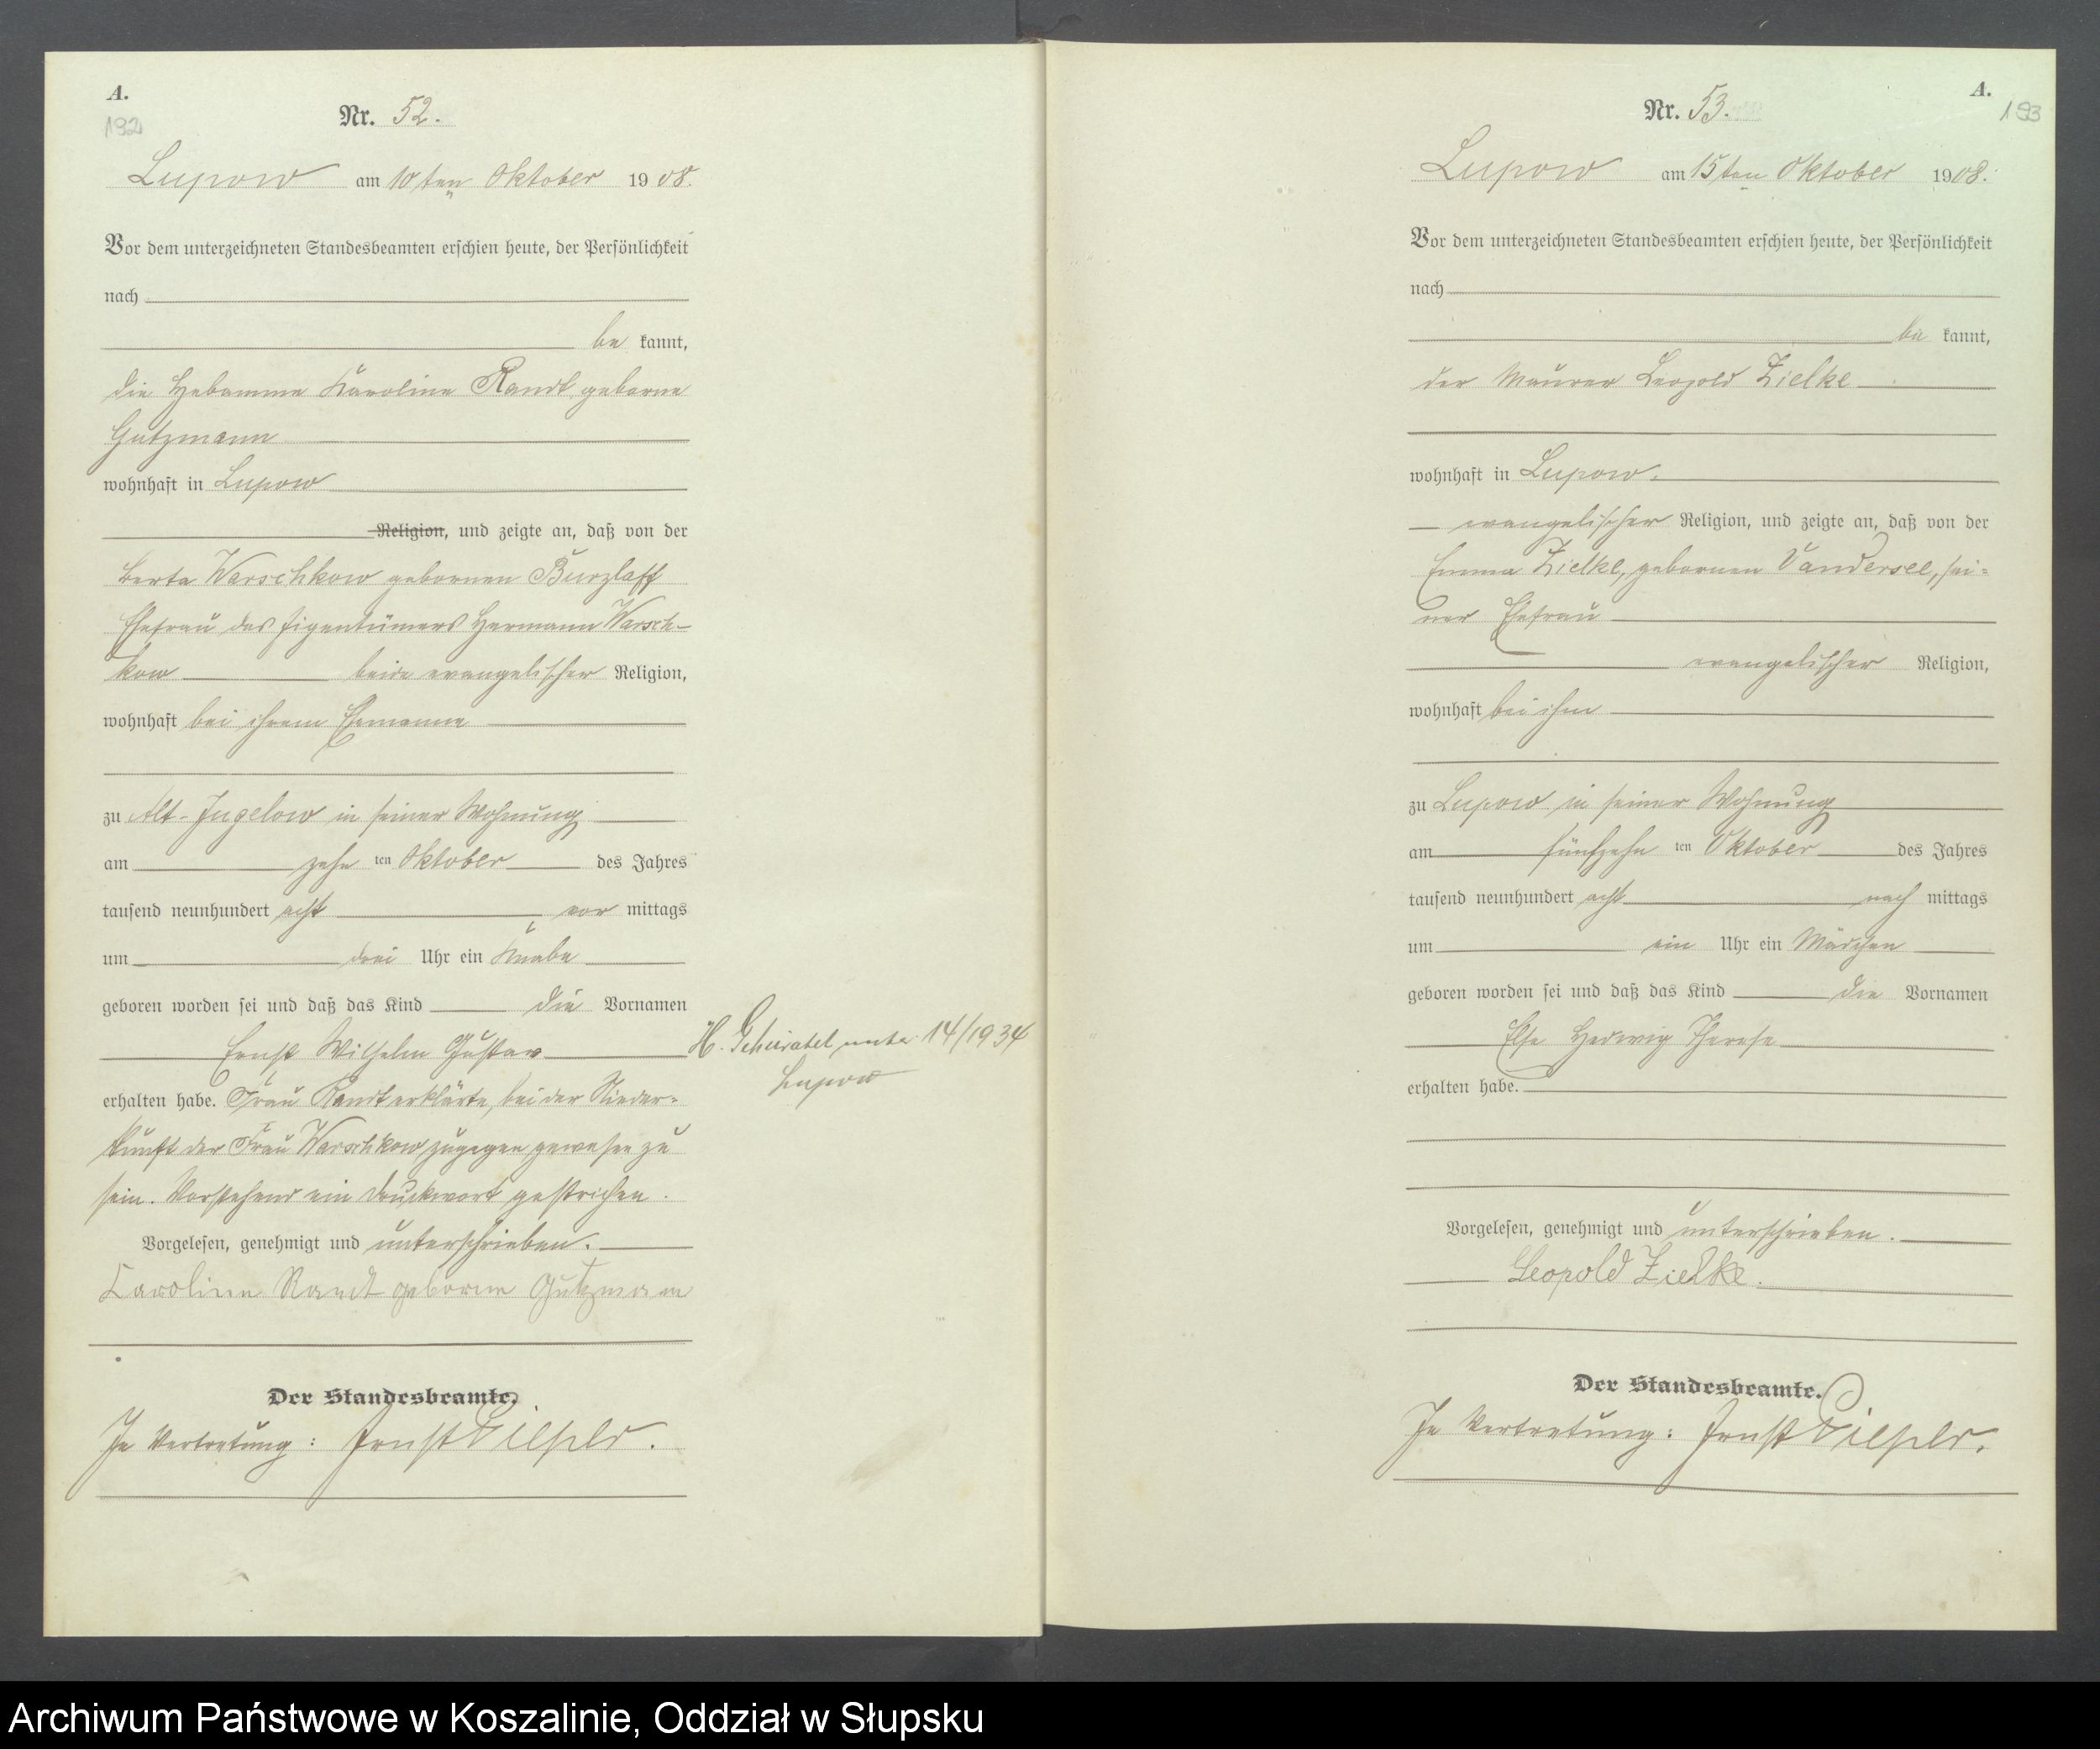 A.
192
Nr. 52.
Lupow am 10ten Oktober 1908.
Vor dem unterzeichneten Standesbeamten erschien heute, der Persönlichkeit
nach
be kannt,
die Hebamme Karoline Randt geborne
Gutzmann
wohnhaft in Lupow
Religion, und zeigte an, daß von der
Berta Warschkow gebornen Burzlaff
Ehefrau des Eigentümers Hermann Warsch-
kow beide evangelischer Religion,
wohnhaft bei ihrem Ehemanne
zu Alt-Jugelow in seiner Wohnung
am zehn ten Oktober des Jahres
tausend neunhundert acht vor mittags
um drei Uhr ein Knabe
geboren worden sei und daß das Kind die Vornamen
Ernst Wilhelm Gustav
erhalten habe. Frau Randt erklärte, bei der Nieder-
kunft der Frau Warschkow zugegen gewesen zu
sein. Vorstehend ein Druckwort gestrichen.
Vorgelesen, genehmigt und unterschrieben.
Karoline Randt geborne Gutzmann
Der Standesbeamte.
In Vertretung: Ernst
H. Geheiratet unter 14/1934
Lupow
A.
193
Nr. 53.
Lupow am 15ten Oktober 1908.
Vor dem unterzeichneten Standesbeamten erschien heute, der Persönlichkeit
nach
be kannt,
der Maurer Leopold Zielke
wohnhaft in Lupow.
evangelischer Religion, und zeigte an, daß von der
Emma Zielke, gebornen Vandersee, sei-
ner Ehefrau
evangelischer Religion,
wohnhaft bei ihm
zu Lupow in seiner Wohnung
am fünfzehn ten Oktober des Jahres
tausend neunhundert acht nach mittags
um ein Uhr ein Mädchen
geboren worden sei und daß das Kind die Vornamen
Else Hedwig Therese
erhalten habe.
Vorgelesen, genehmigt und unterschrieben.
Leopold Zielke.
Der Standesbeamte.
In Vertretung: Ernst
Archiwum Państwowe w Koszalinie, Oddział w Słupsku